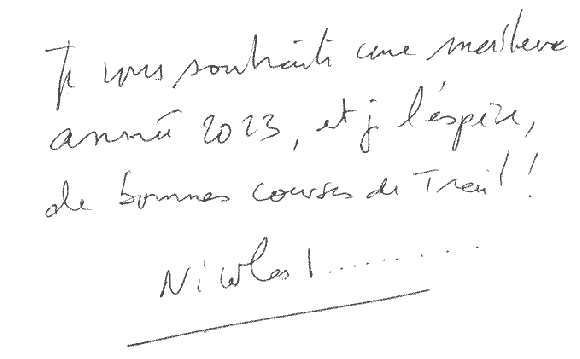 Je vous souhaite une meilleure
année 2023, et je l'éspère,
de bonnes courses de Trail !
Nicolas !.........